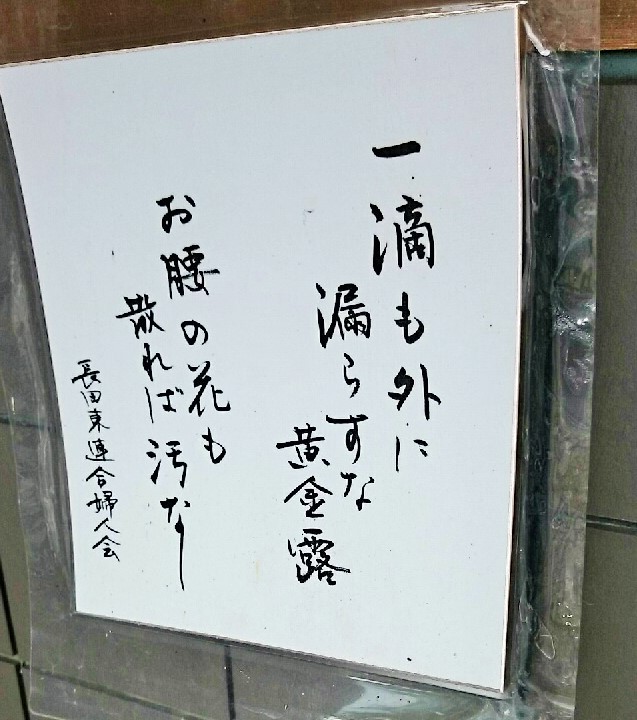 一滴も外に
漏らすな
黄金露
お腰の花も
散れば汚なし
長田東連合婦人会